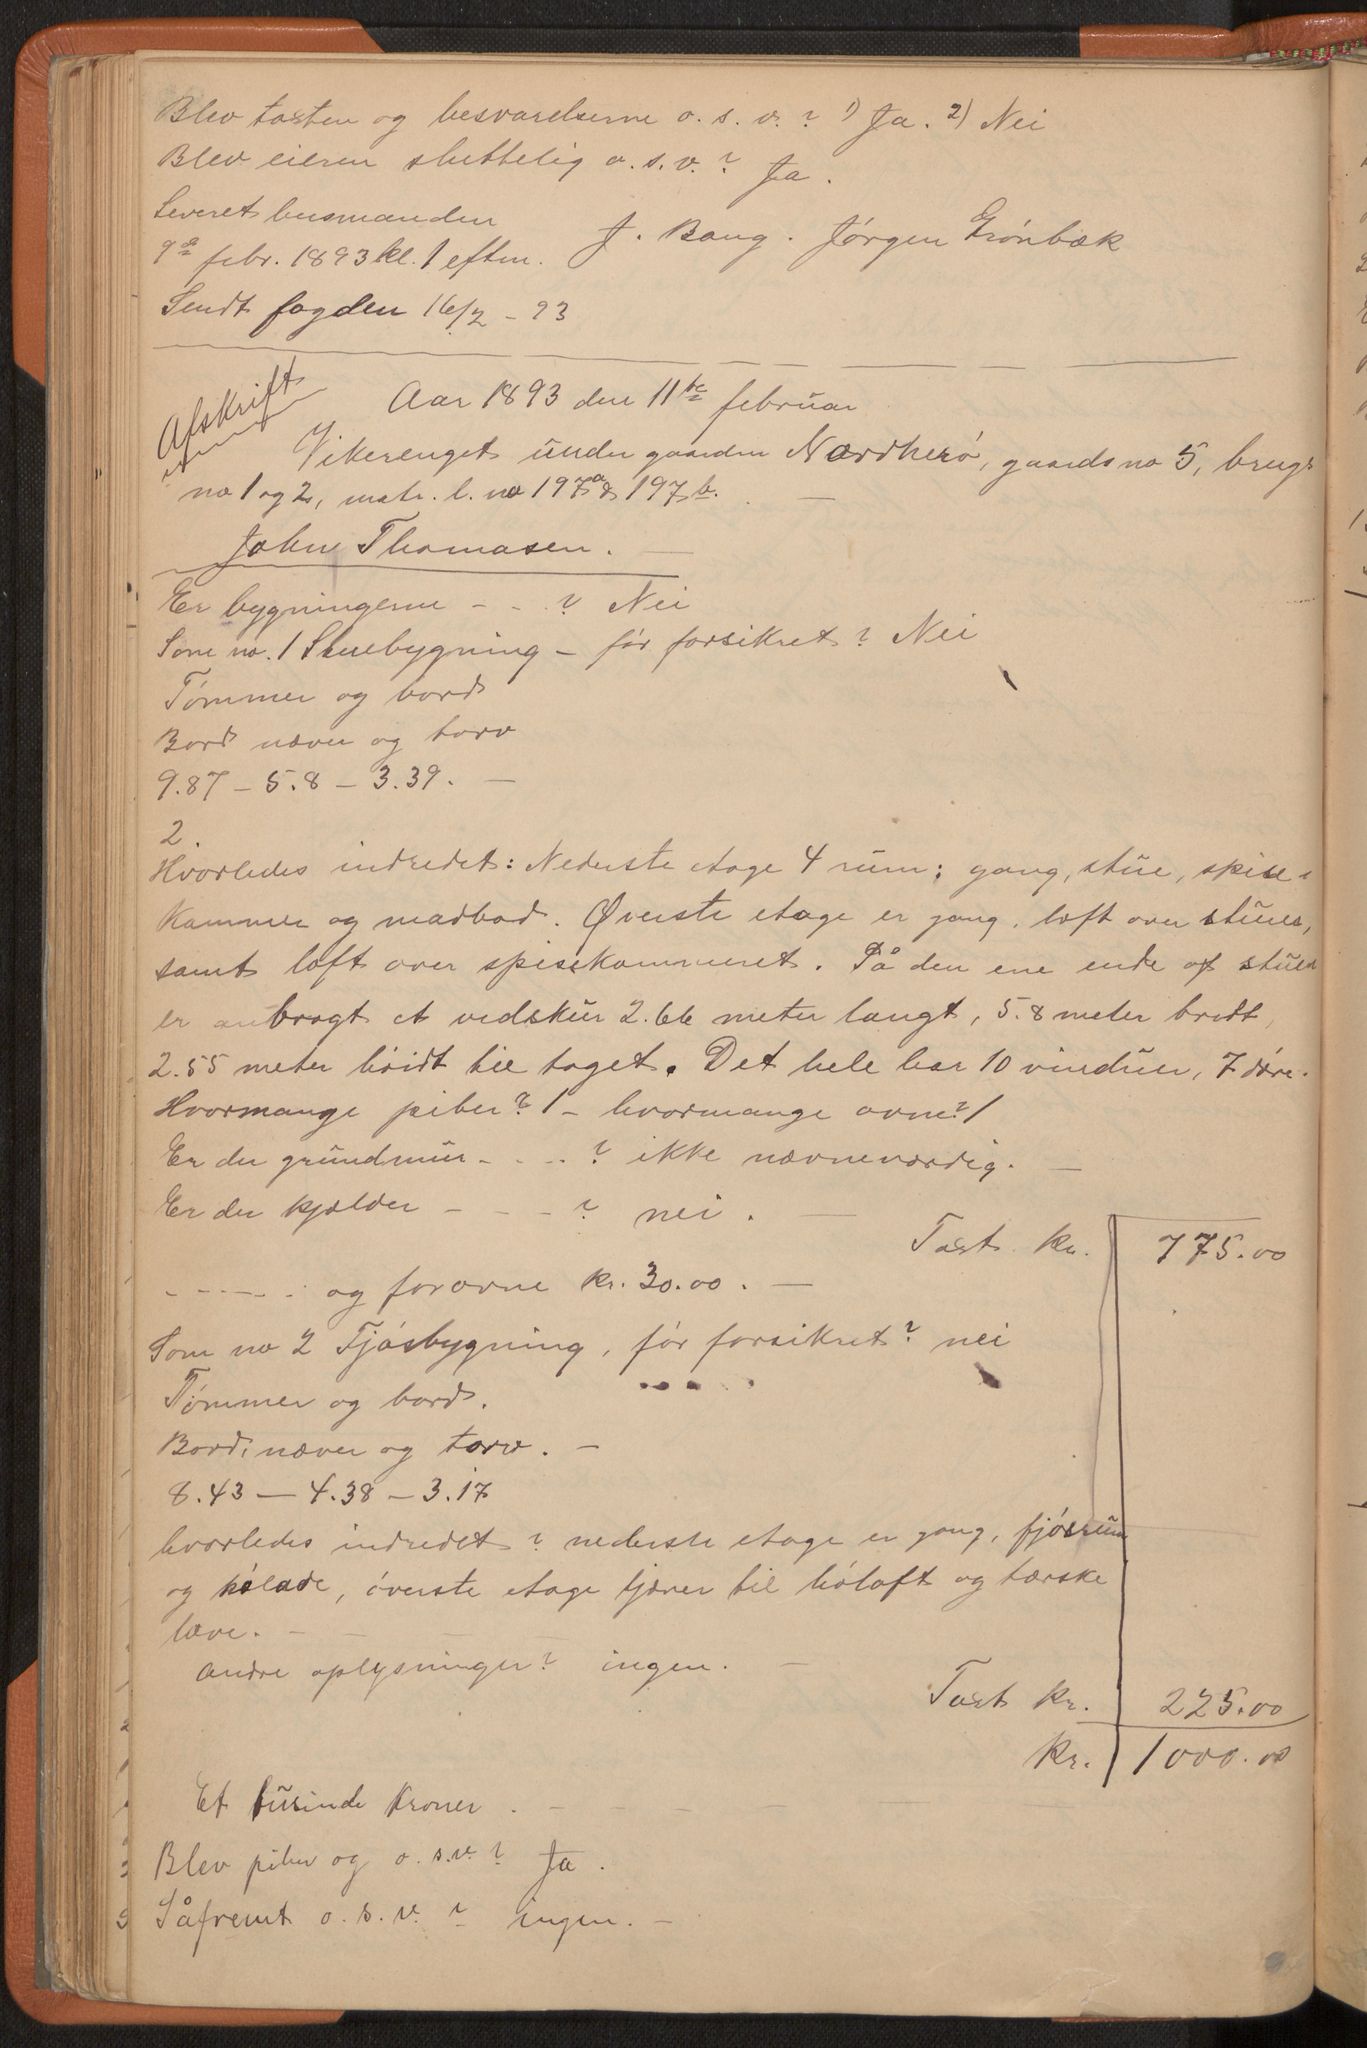 Blev taxten og besvarelserne o. s. v. ? 1) Ja. 2) Nei
Blev eieren sluttelig o. s. v. ? Ja.
Leveret busmanden
9de febr. 1893 kl. 1 efterm. J. Bang. Jørgen Grönbæk
Sendt fogden 16/2 - 93
Afskrift
Aar 1893 den 11te februar
Vikerenget under gaarden Nordherö, gaards no 5, brugs
no 1 og 2, matr. l. no 197a & 197b.
John Thomasen.
Er bygningerne - - ? Nei
Som no. 1 Stuebygning - før forsikret? Nei
Tömmer og bord
Bord næver og torv
9.87 - 5.8 - 3.39. -
2.
Hvorledes indredet: Nederste etage 4 rum; gang, stue, spise-
kammer og madbod. Øverste etage er gang, loft over stuen,
samt loft over spisekammeret. På den ene ende af stuen
er anbragt et vedskur 2.66 meter langt, 5.8 meter bredt,
2.55 meter höidt til taget. Det hele har 10 vinduer, 7 döre.
Hvormange piber? 1 - hvormange ovne? 1
Er der grundmur - . - . ? ikke nævneværdig. -
Er der kjælder - - - ? nei. -
Taxt kr. 775.00
- - - - - og for ovne kr. 30.00. -
Som no 2 Fjösbygning, för forsikret? nei
Tömmer og bord.
Bord, næver og torv. -
8.43 - 4.38 - 3.17
hvorledes indredet? nederste etage er gang, fjösrum
og hölade, överste etage tjener til höloft og tærske
læve. - - -
andre oplysninger? ingen. -
Taxt kr. 225.00
kr. 1000.00
Et tusinde kroner. - - - - -
Blev piber og o. s. v. ? Ja.
Såfremt o. s. v. ? ingen. -